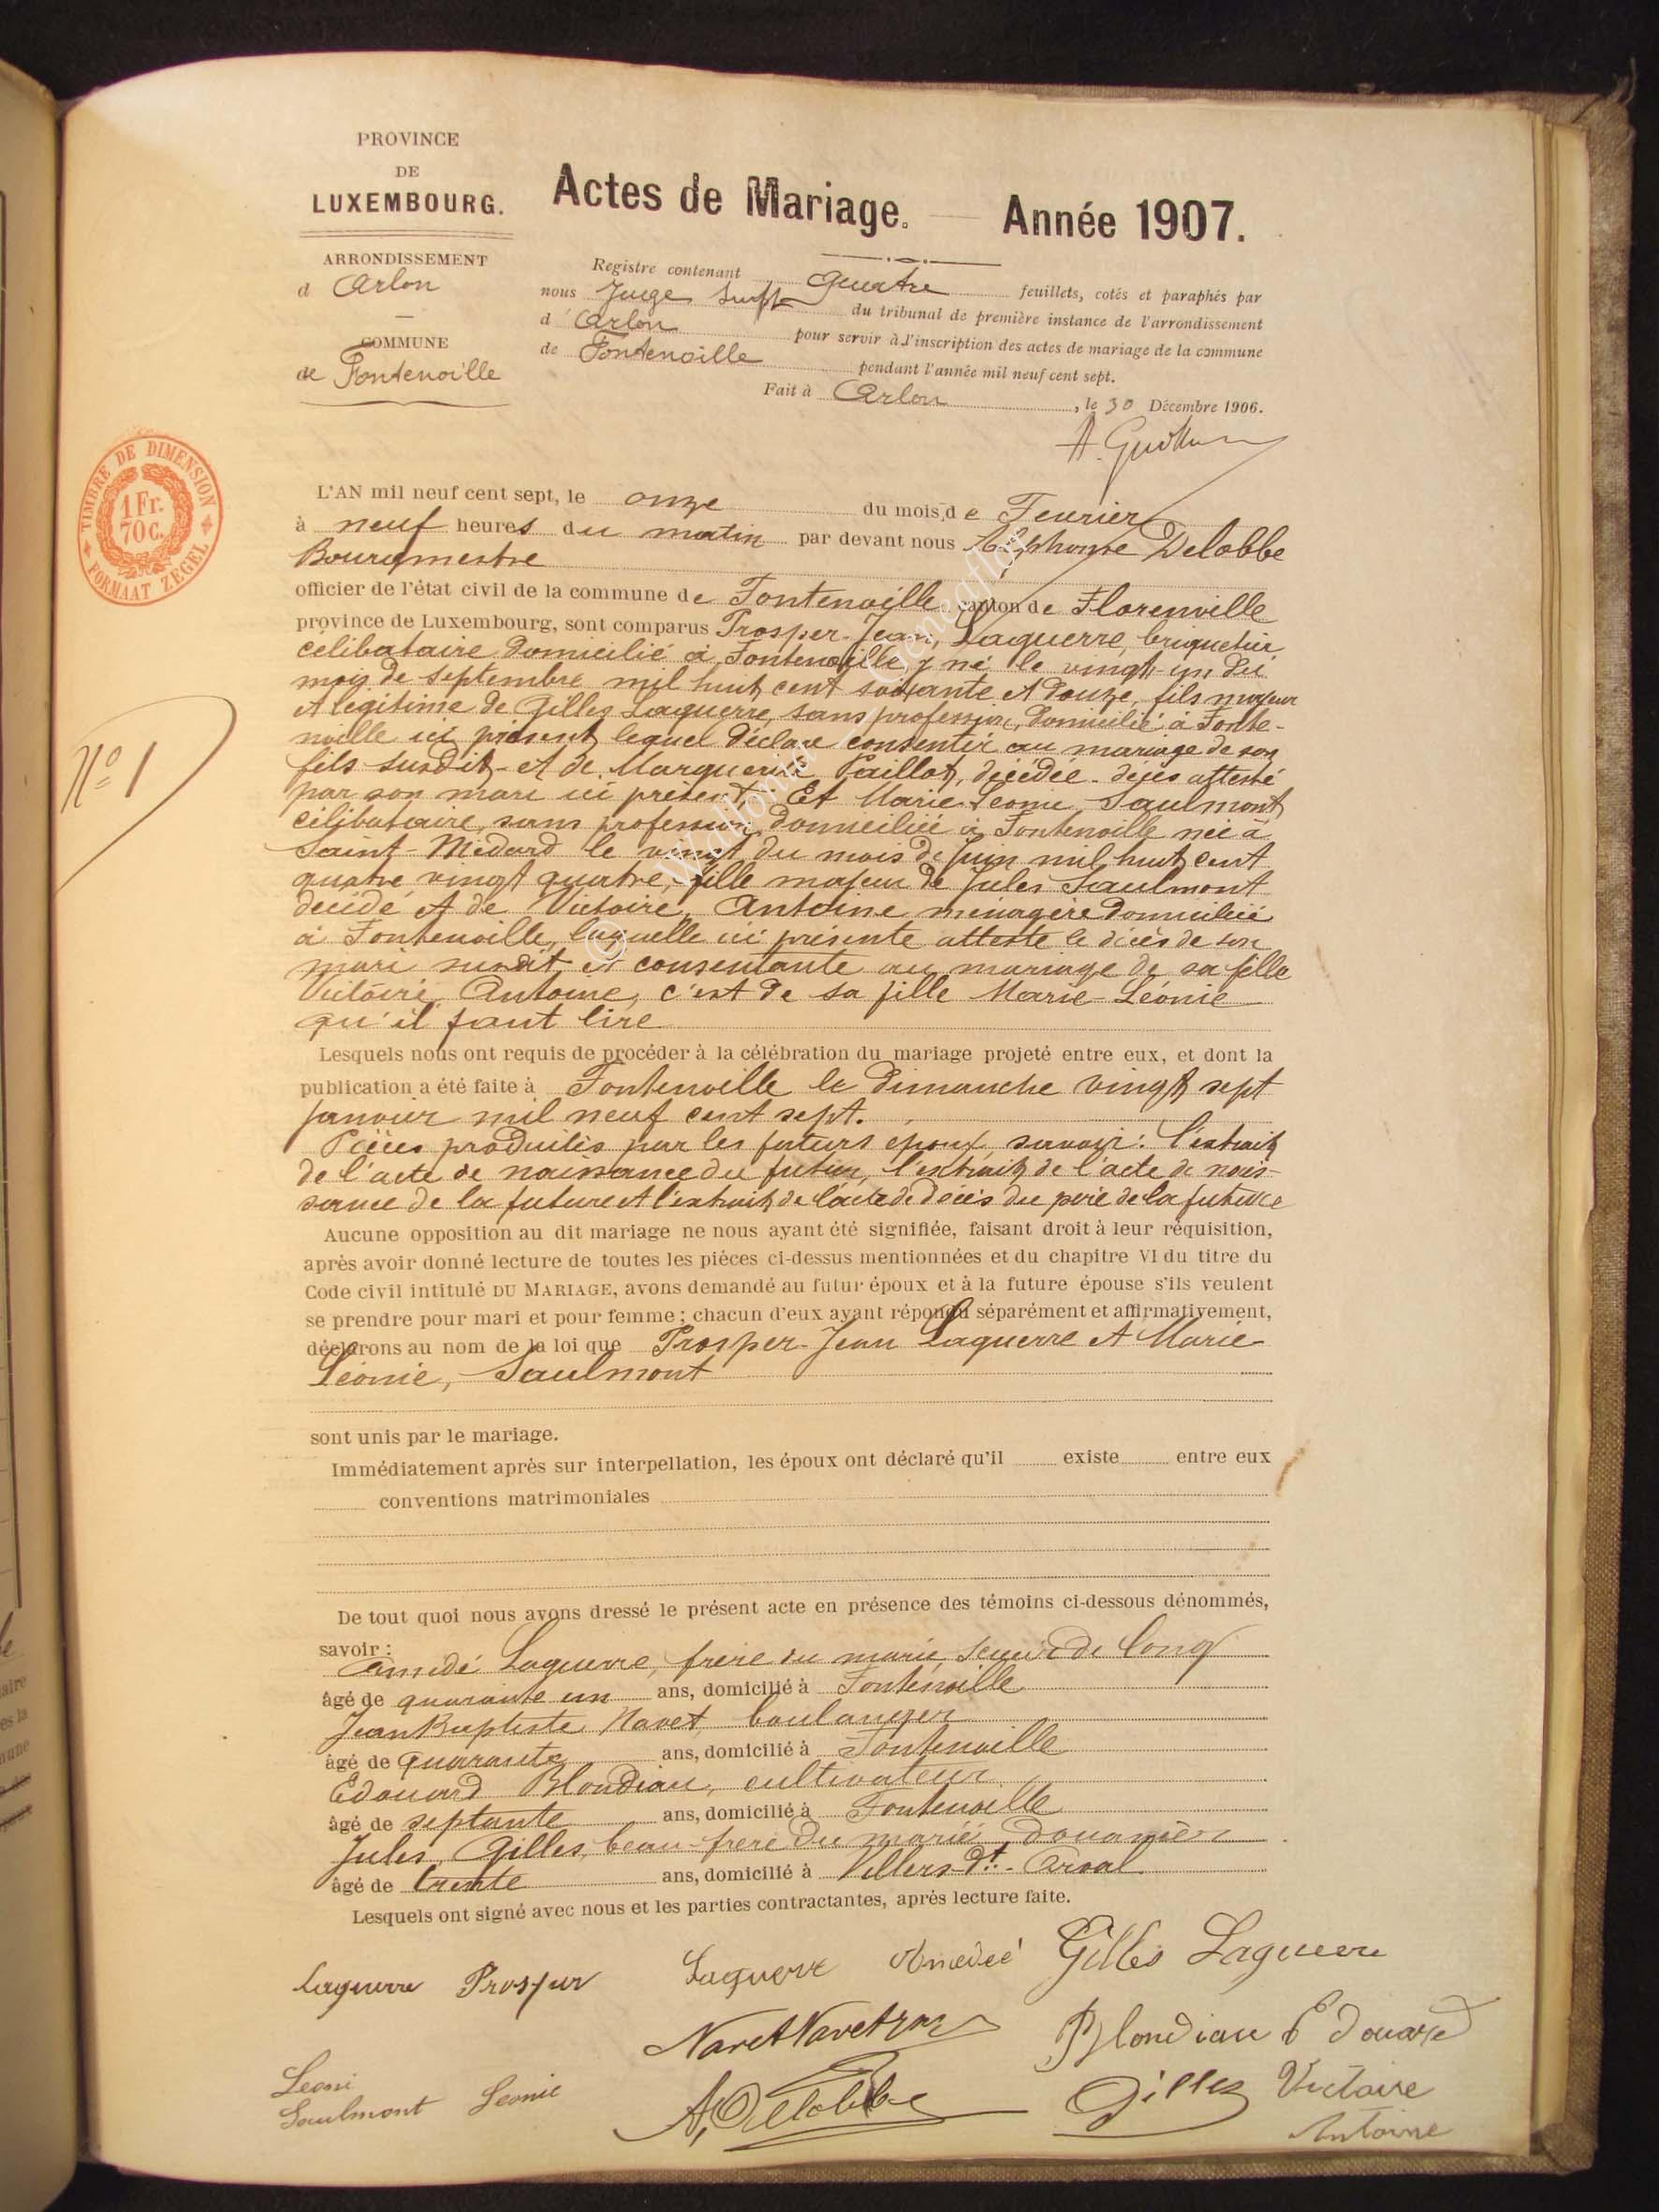 PROVINCE
DE
LUXEMBOURG.
Actes de Mariage. — Année 1907.
ARRONDISSEMENT
d Arlon
COMMUNE
de Fontenoille
Registre contenant quatre feuillets, cotés et paraphés par
nous Juge du tribunal de première instance de l'arrondissement
d' Arlon pour servir à l'inscription des actes de mariage de la commune
de Fontenoille pendant l'année mil neuf cent sept.
Fait à Arlon, le 30 Décembre 1906.
TIMBRE DE DIMENSION
1 Fr.
70 C.
FORMAAT ZEGEL
N° 1
L'AN mil neuf cent sept, le onze du mois de Fevrier
à neuf heures du matin par devant nous Alphonse Delobbe
Bourgmestre
officier de l'état civil de la commune de Fontenoille canton de Florenville
province de Luxembourg, sont comparus Prosper-Jean, Laguerre, briquetier
célibataire domicilié à Fontenoille, y né le vingt-un du
mois de septembre mil huit cent soixante et douze, fils majeur
et légitime de Gilles Laguerre, sans profession, domicilié à Fonte-
noille ici présent lequel déclare consentir au mariage de son
fils susdit et de Marguerite Paillot, décédée - décès attesté
par son mari ici présent. Et Marie Léonie Saulmont
célibataire, sans profession domiciliée à Fontenoille née à
Saint-Médard le vingt du mois de Juin mil huit cent
quatre vingt quatre, fille majeur de Jules Saulmont
décédé et de Victoire Antoine ménagère domiciliée
à Fontenoille, laquelle ici présente atteste le décès de son
mari susdit et consentante au mariage de sa fille
Victoire Antoine, c'est de sa fille Marie-Léonie
qu'il faut lire
Lesquels nous ont requis de procéder à la célébration du mariage projeté entre eux, et dont la
publication a été faite à Fontenoille le dimanche vingt sept
janvier mil neuf cent sept.
Pièces produites par les futurs époux savoir : l'extrait
de l'acte de naissance du futur, l'extrait de l'acte de nais-
sance de la future et l'extrait de l'acte de décès du père de la future
Aucune opposition au dit mariage ne nous ayant été signifiée, faisant droit à leur réquisition,
après avoir donné lecture de toutes les pièces ci-dessus mentionnées et du chapitre VI du titre du
Code civil intitulé DU MARIAGE, avons demandé au futur époux et à la future épouse s'ils veulent
se prendre pour mari et pour femme ; chacun d'eux ayant répondu séparément et affirmativement,
déclarons au nom de la loi que Prosper-Jean Laguerre et Marie
Léonie, Saulmont
sont unis par le mariage.
Immédiatement après sur interpellation, les époux ont déclaré qu'il existe entre eux
conventions matrimoniales
De tout quoi nous avons dressé le présent acte en présence des témoins ci-dessous dénommés,
savoir :
Amédé Laguerre, frère du marié, scieur de long
âgé de quarante un ans, domicilié à Fontenoille
Jean Baptiste Navet boulanger
âgé de quarante ans, domicilié à Fontenoille
Edouard Blondiau, cultivateur
âgé de septante ans, domicilié à Fontenoille
Jules Gilles, beau-frère du marié, douanier
âgé de trente ans, domicilié à Villers-dt-Orval
Lesquels ont signé avec nous et les parties contractantes, après lecture faite.
Laguerre Prosper Laguerre Amedeé Gilles Laguerre
Navet Blondiau Edouard
Leoni
Saulmont Leonie A, Delobbe Gilles Victoire
Antoine